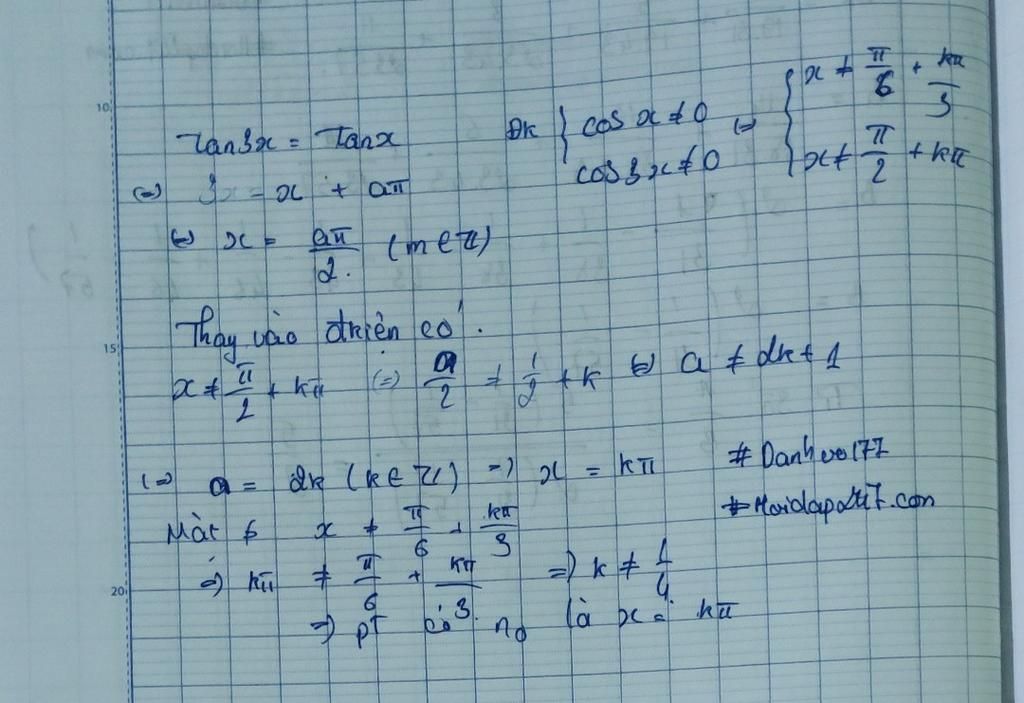 10
Tan3x = Tanx ĐK { cos x ≠ 0 cos3x ≠ 0 (=) { x ≠ π/6 + kπ/3 x ≠ π/2 + kπ
(=) 3x = x + aπ
(=) x = aπ/2. (m ∈ Z)
Thay vào đkiện có:
15
x ≠ π/2 + kπ (=) a/2 ≠ 1/2 + k (=) a ≠ 2k + 1
(=) a = 2k (k ∈ Z) =) x = kπ #Danhvo177
Mặt ≠ x ≠ π/6 + kπ/3 #Hoidap247.com
20
=) kπ ≠ π/6 + kπ/3 =) k ≠ 1/4
=) pT có no là x = kπ